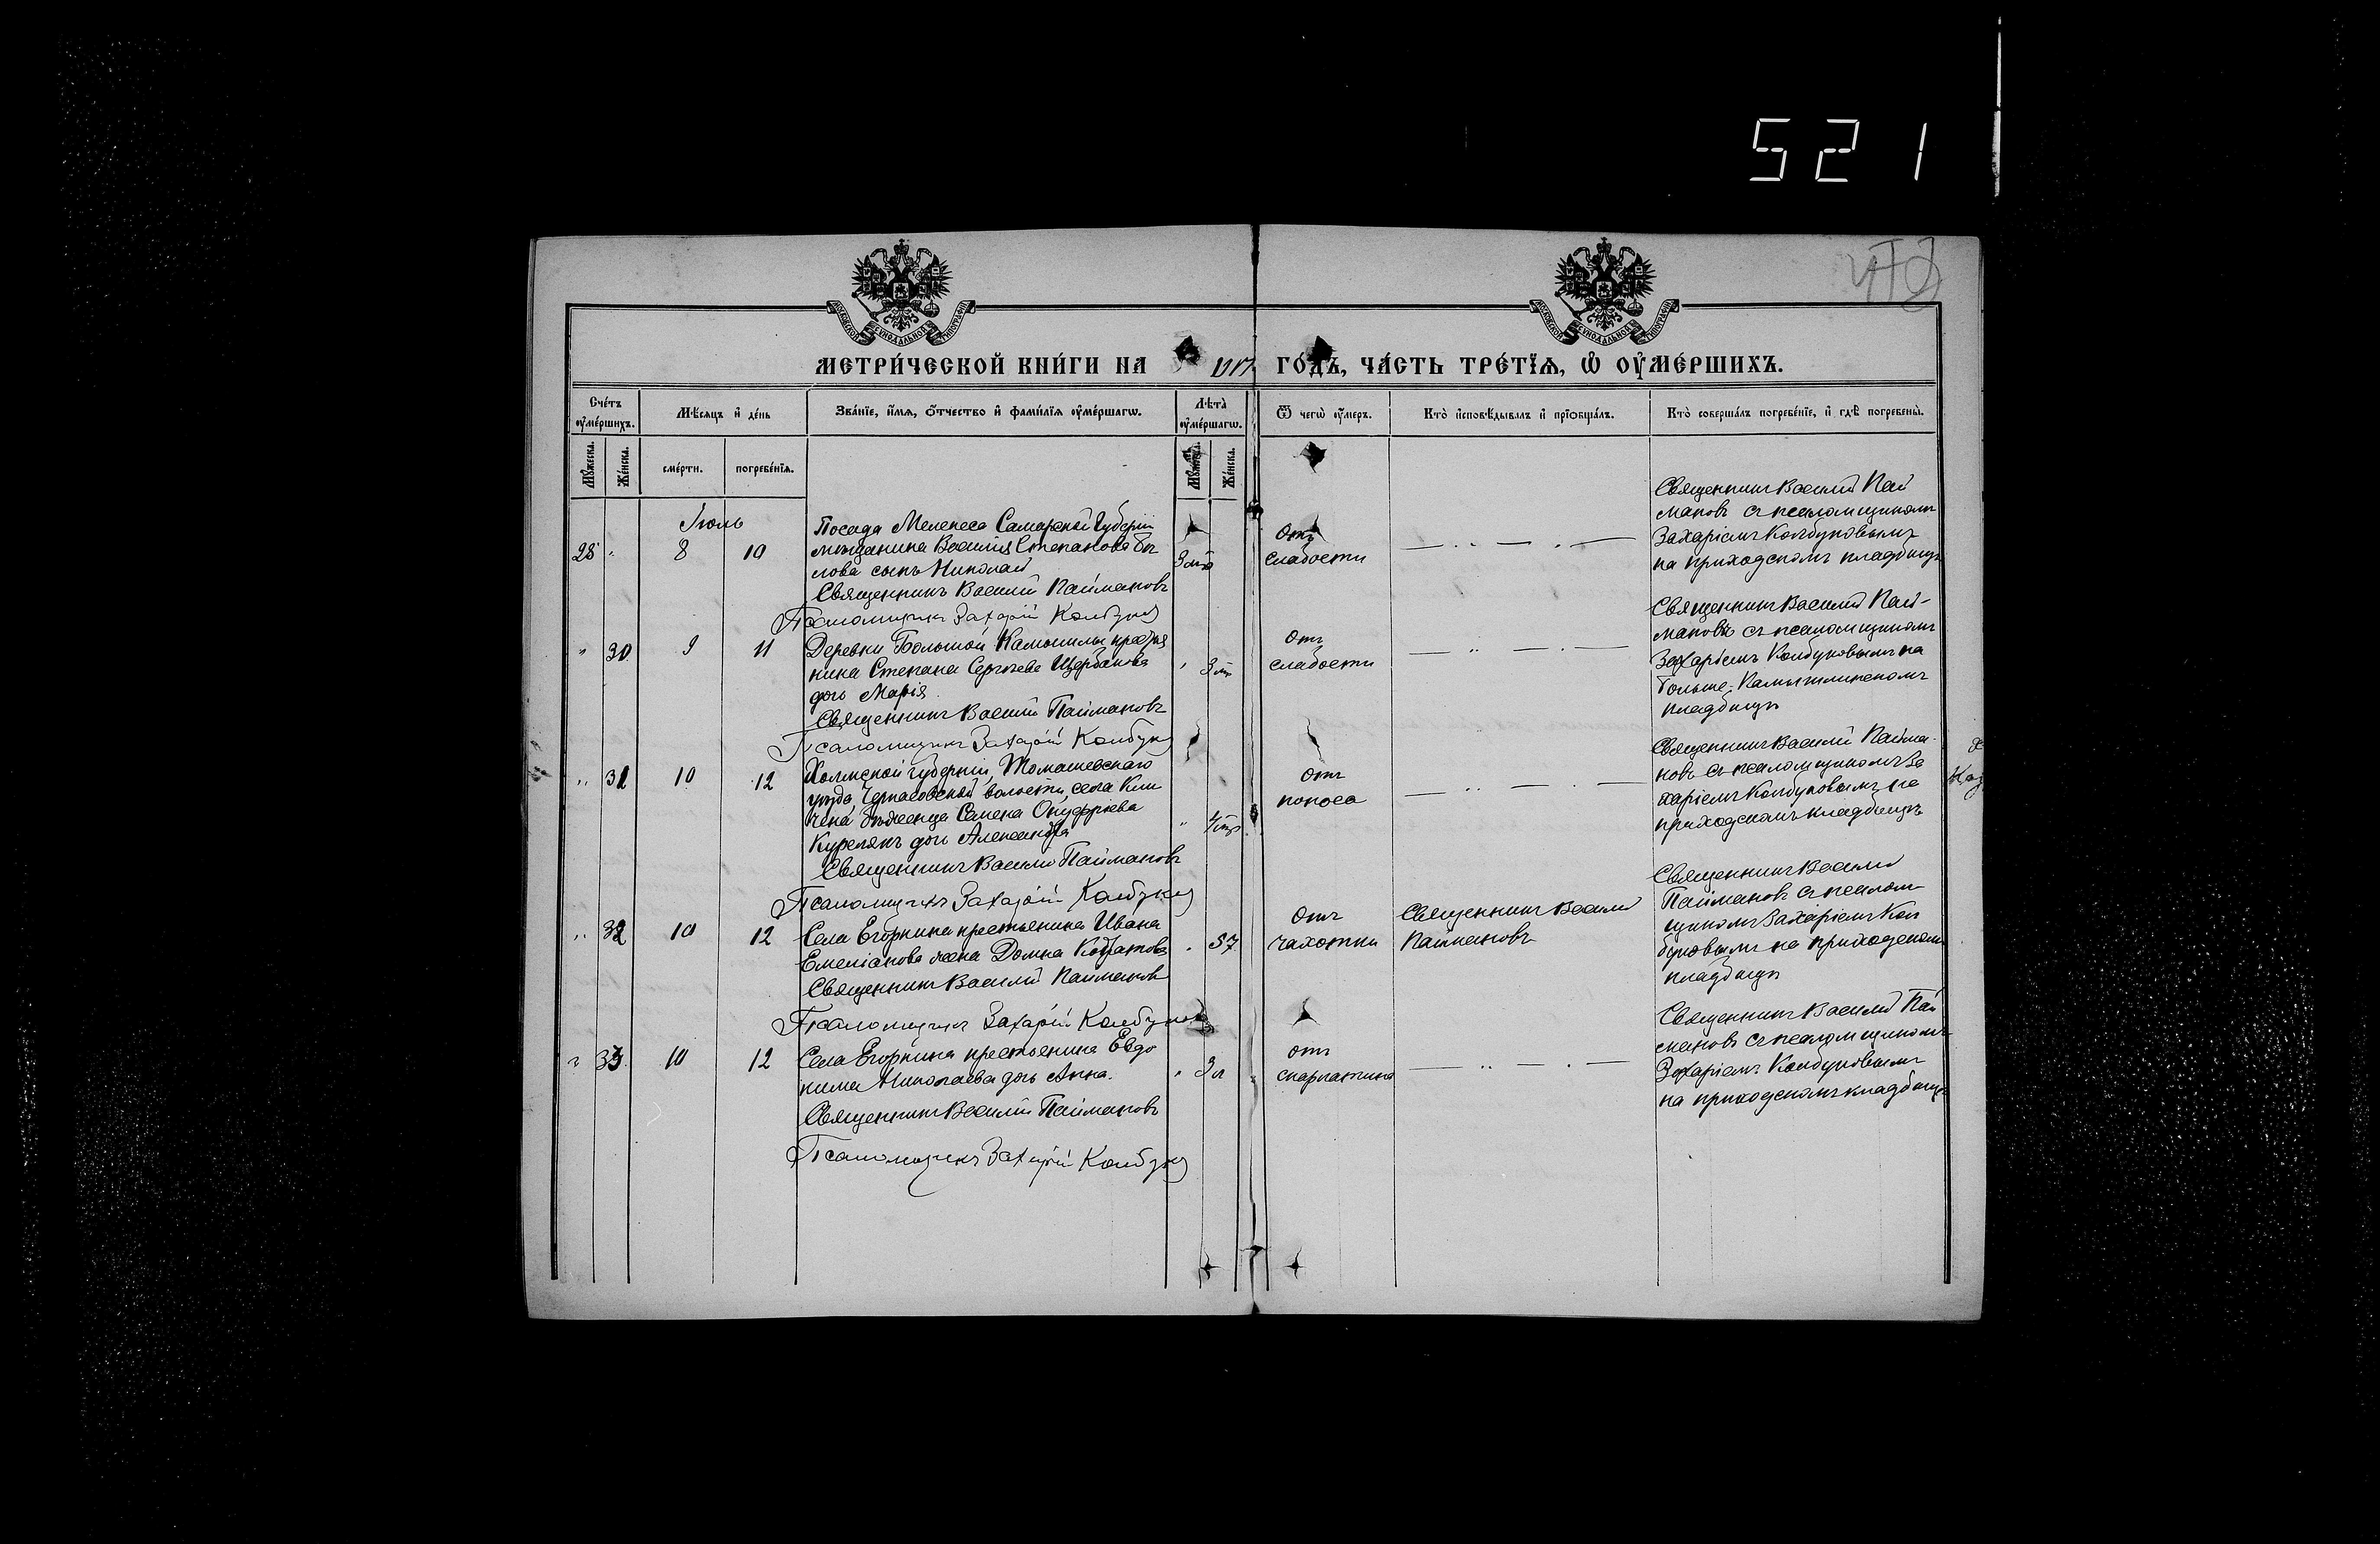 521
МОСКОВСКОЙ СѴНОДАЛЬНОЙ ТИПОГРАФІИ
МОСКОВСКОЙ СѴНОДАЛЬНОЙ ТИПОГРАФІИ
МЕТРИ́ЧЕСКОЙ КНИ́ГИ НА 1917 ГО́ДЪ, ЧА́СТЬ ТРЕ́ТЇѦ, Ѡ҆ ОУ҆МЕ́РШИХЪ.
Сче́тъ оу҆ме́ршихъ.
Мѣ́сѧцъ и҆ де́нь
Зва́нїе, и҆́мѧ, ѻ҆́тчество и҆ фами́лїѧ оу҆ме́ршагѡ.
Лѣ́та оу҆ме́ршагѡ.
Ѿ чегѡ̀ оу҆́меръ.
Кто̀ и҆сповѣ́дывалъ и҆ прїѡбща́лъ.
Кто̀ соверша́лъ погребе́нїе, и҆ гдѣ̀ погребены̀.
Мꙋ́жеска.
Же́нска.
сме́рти.
погребе́нїѧ.
Мꙋ́жеска.
Же́нска.
Іюль
28 " 8 10
Посада Мелекеса Самарской Губерніи
мѣщанина Василія Степанова Бы
лова сынъ Николай
Священникъ Василій Паймановъ
Псаломщикъ Захарій Колбуко
3 м
Отъ
слабости
Священникъ Василій Пай
мановъ съ псаломщикомъ
Захаріемъ Колбуковымъ
на приходскомъ кладбищѣ
" 30 9 11
Деревни Большой Камышлы крестья
нина Степана Сергѣева Щербакова
дочь Марія
Священникъ Василій Паймановъ
Псаломщикъ Захарій Колбук
" 3 м
Отъ
слабости
Священникъ Василій Пай-
мановъ съ псаломщикомъ
Захаріемъ Колбуковымъ на
Больше-Камышлинскомъ
кладбищѣ
" 31 10 12
Холмской губерніи, Томашевскаго
уѣзда, Черкасовской волости, села Кли
чена бѣженца Семена Онуфріева
Курелякъ дочь Александра
Священникъ Василій Паймановъ
Псаломщикъ Захарій Колбуко
"
Отъ
поноса
Священникъ Василій Пайма-
новъ съ псаломщикомъ За
харіемъ Колбуковымъ на
приходскомъ кладбищѣ
" 32 10 12
Села Егоркина крестьянина Ивана
Емеліанова жена Домна Кондратова
Священникъ Василій Паймановъ
Псаломщикъ Захарій Колбуков
" 37
Отъ
чахотки
Священникъ Василій
Паймановъ
Священникъ Василій
Паймановъ съ псалом
щикомъ Захаріемъ Кол
буковымъ на приходскомъ
кладбищѣ
" 33 10 12
Села Егоркина крестьянина Евдо
кима Николаева дочь Анна.
Священникъ Василій Паймановъ
Псаломщикъ Захарій Колбуко
" 3 л
отъ
скарлатина
Священникъ Василій Пай
мановъ съ псаломщикомъ
Захаріемъ Колбуковымъ
на приходскомъ кладбищѣ